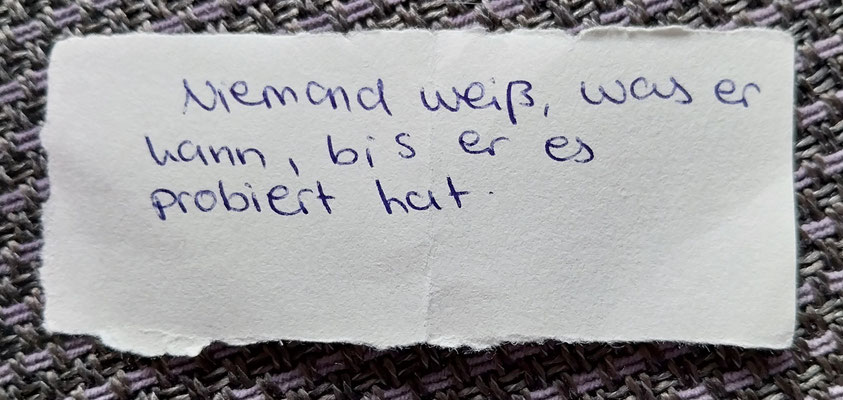 Niemand weiß, was er
kann, bis er es
probiert hat.